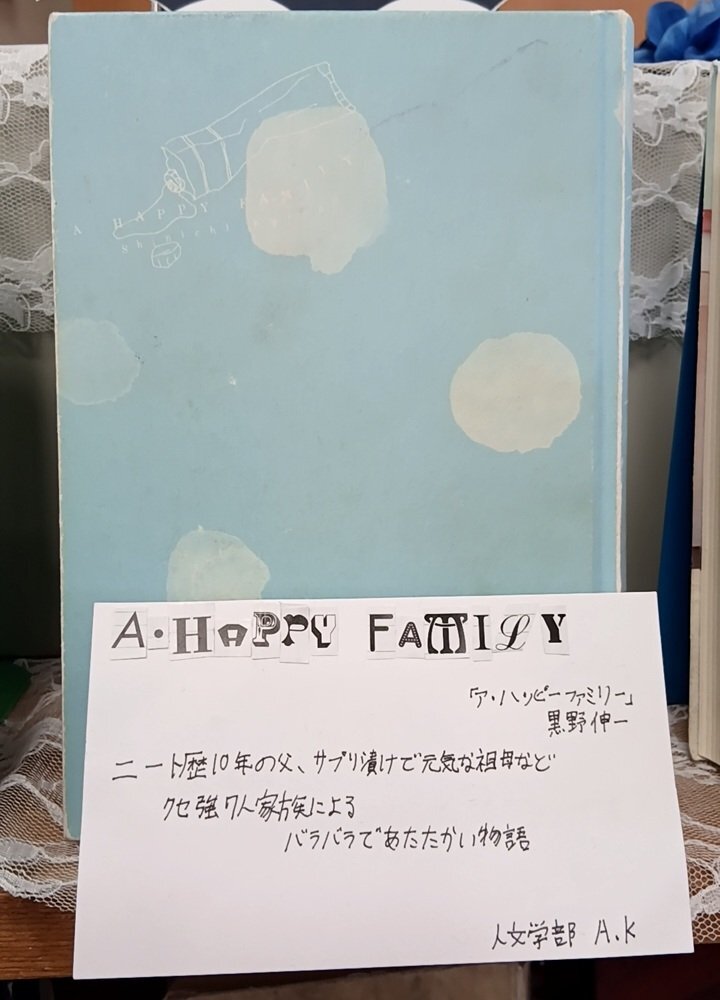 A HAPPY FAMILY
Shinichi
A・HAPPY FAMILY
「ア・ハッピーファミリー」
黒野伸一
ニート歴10年の父、サプリ漬けで元気な祖母など
クセ強7人家族による
バラバラであたたかい物語
人文学部 A.K